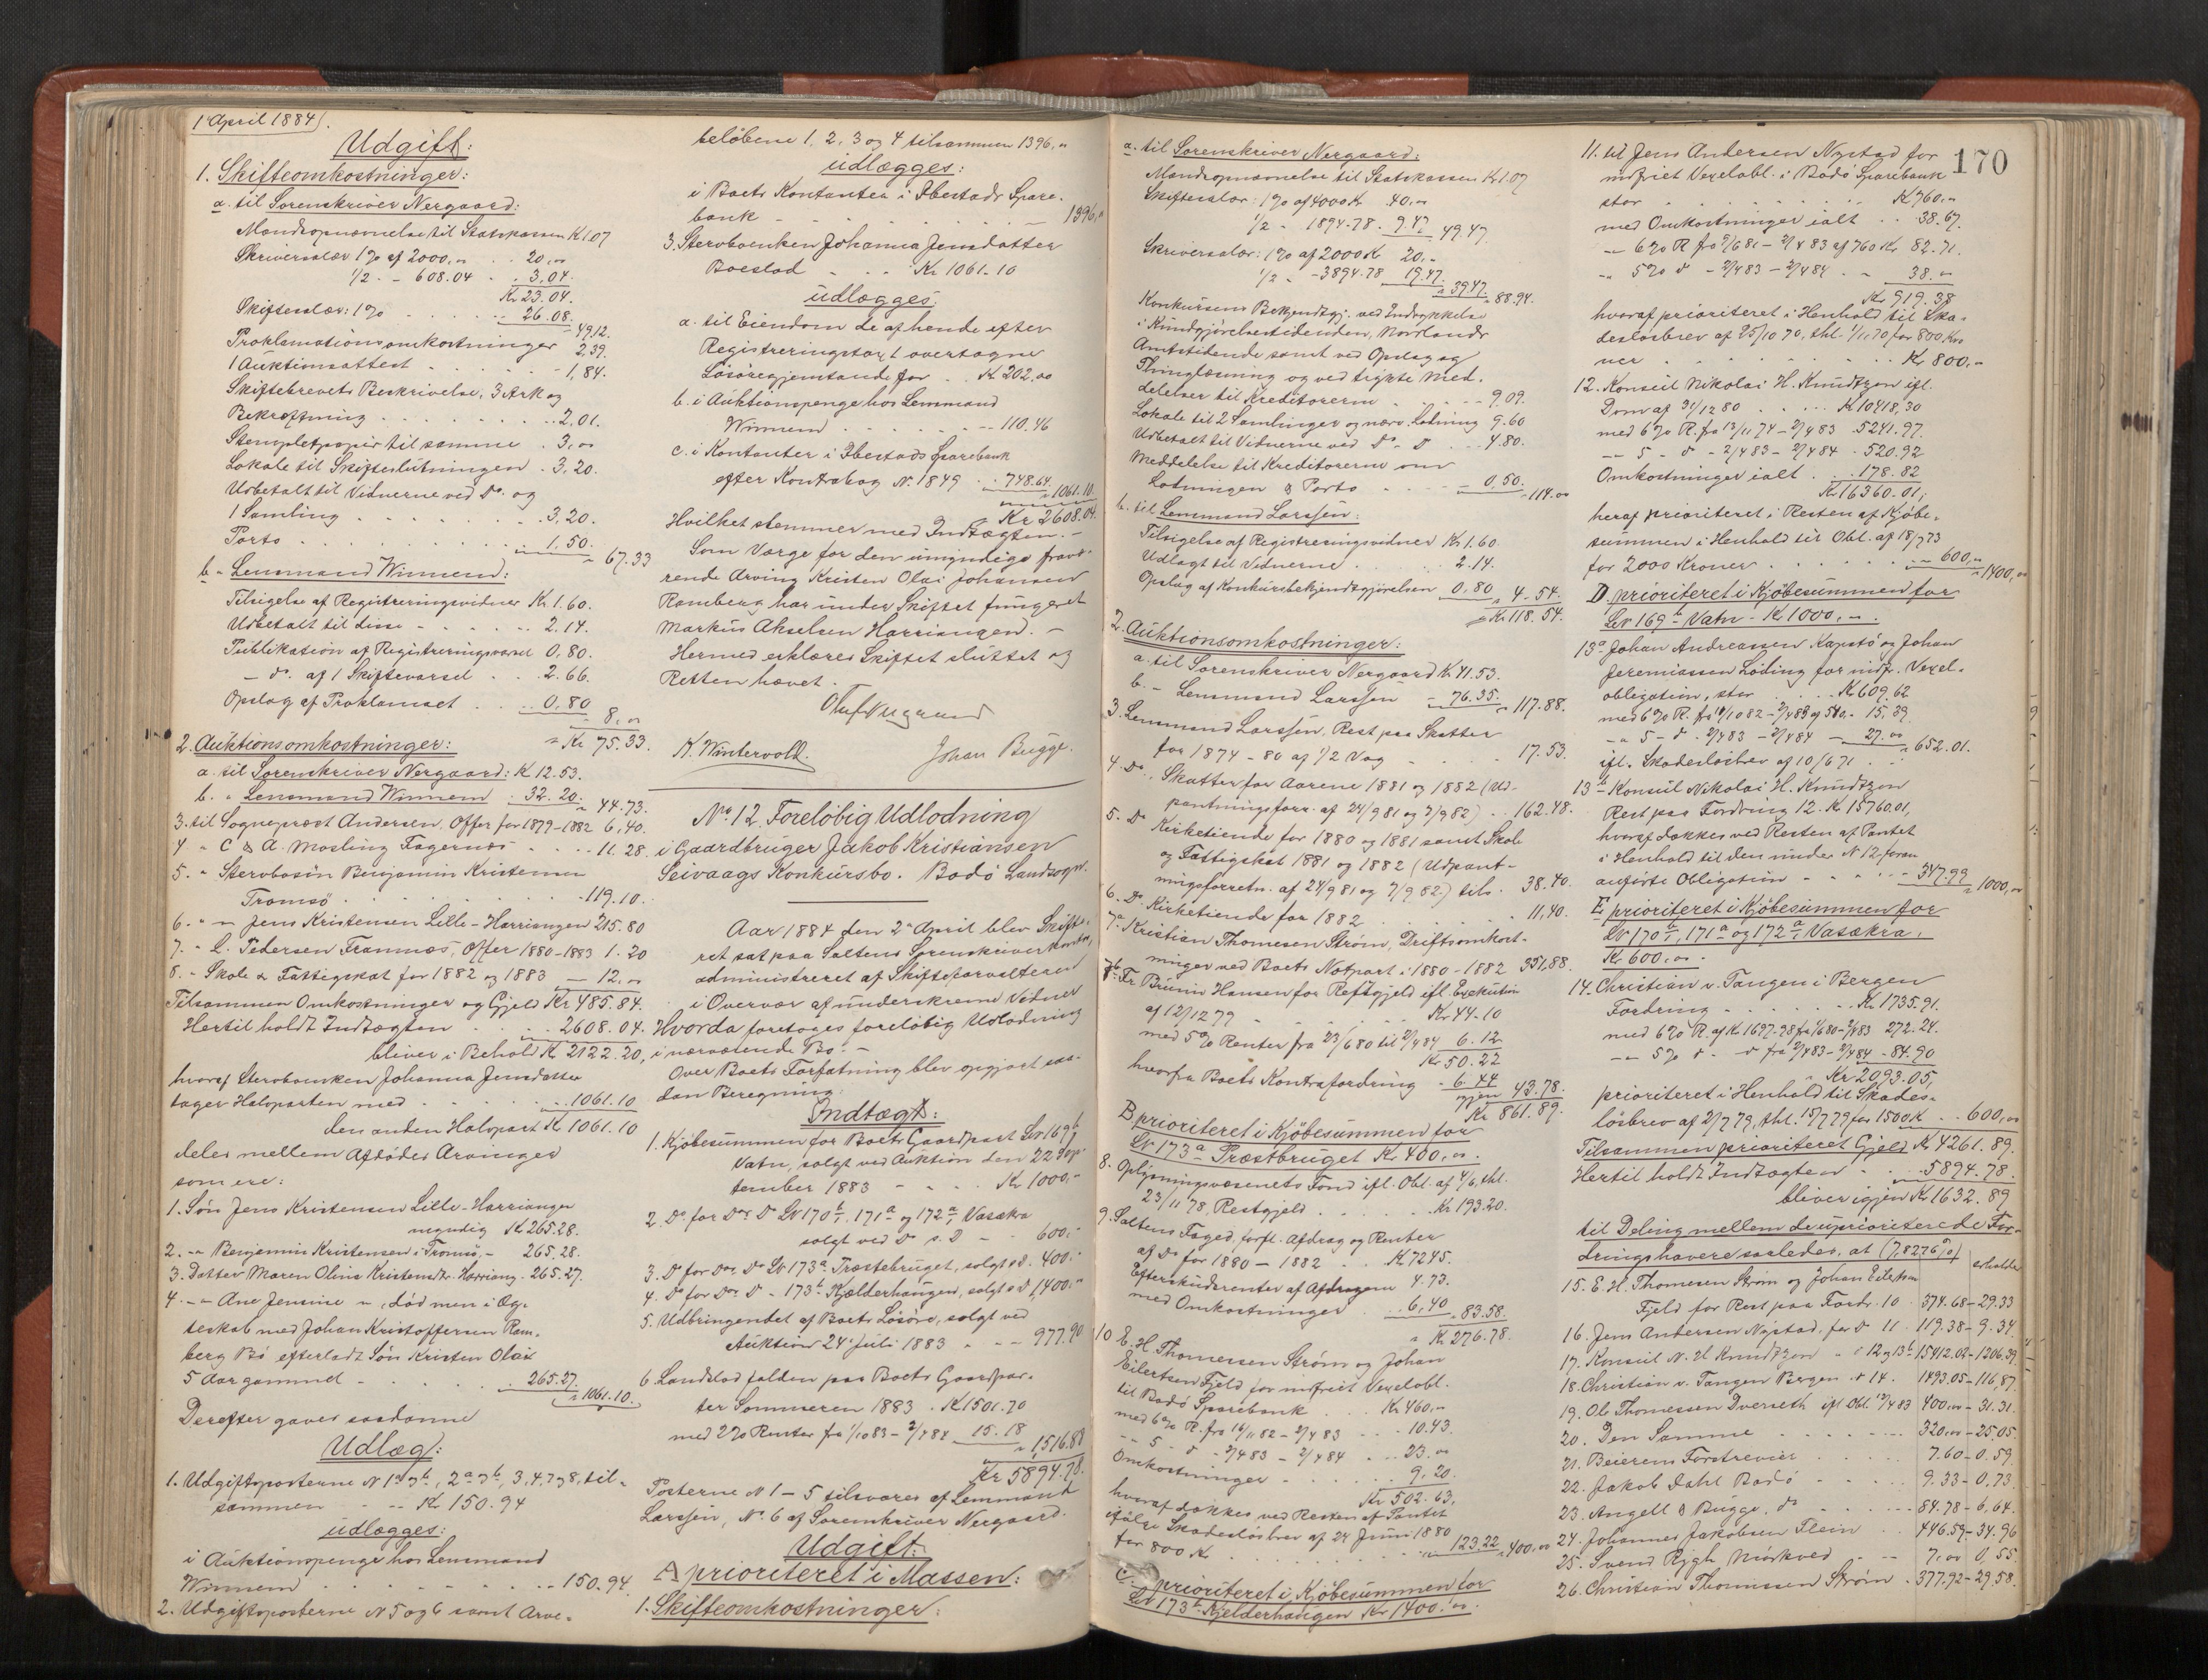 1 April 1884.
Udgift:
1. Skifteomkostninger:
a. til Sorenskriver Nergaard:
Mandsopnævnelse til Statskassen K 1.07
Skriversalær 1% af 2000,00 . . 20,00
1/2 . - 608.04 . . 3,04.
Kr. 23.04.
Skiftesalær: 1% . . . . . 26.08.
49,12.
Proklamationsomkostninger 2,39.
1 Auktionsattest . . . . . 1,84.
Skiftebrevets Beskrivelse, 3 Ark og
Bekræftning . . . . . 2,01.
Stemplet papir til samme . 3,00
Lokale til Skifteslutningen . 3,20.
Udbetalt til Vidnerne ved Do. og
1 Samling . . . . . 3,20.
Porto . . . . . 1,50.
" 67.33
b. - Lensmand Winnem:
Tilsigelse af Registreringsvidner Kr. 1.60.
Udbetalt til disse - - . . 2.14.
Publikation af Registreringsvarsel 0.80.
- do. af 1 Skiftevarsel . . 2.66.
Opslag af Proklamaet . . 0,80
" 8,00
= Kr. 75.33.
2. Auktionsomkostninger:
a. til Sorenskriver Nergaard: K 12.53.
b. " Lensmand Winnem . 32.20.
" 44.73.
3. til Sogneprest Andersen, Offer for 1879-1882 6,40.
4 " C & A. Mosling Fagernes . . . 11.28.
5. " Sterbosøn Benjamin Kristensen
Tromsø . . . . . 119.10.
6. " - Jens Kristensen Lille-Harriangen 215.80
7. " L. Pedersen Framnæs, Offer 1880-1883 1.20
8. - Skole & Fattigskat for 1882 og 1883 - 12,00
Tilsammen Omkostninger og Gjeld Kr. 485.84.
Hertil holdt Indtægten . . . 2608.04.
bliver i Behold K 2122.20,
hvoraf Sterboenken Johanna Jensdatter
tager Halvparten med . . . . 1061.10
den anden Halvpart K 1061.10
deles mellem Afdødes Arvinger
som ere:
1. Søn Jens Kristensen Lille-Harriangen
myndig K 265.28.
2. -" Benjamin Kristensen i Tromsø, - 265.28.
3. Datter Maren Olina Kristensdtr. Harriang. 265.27.
4. -" Ane Jensine - , død men i Æg-
teskab med Johan Kristoffersen Ram-
berg Bø efterladt Søn Kristen Olai
5 Aar gammel . . . . 265.27.
" 1061.10.
Derefter gaves saadanne
Udlæg:
1. Udgiftsposterne N 1 a & b, 2 a & b, 3, 4, 7 & 8, til-
sammen - - Kr. 150.94
udlægges:
i Auktionspenge hos Lensmand
Winnem . . . . . . 150.94.
2. Udgiftsposterne N 5 og 6 samt Arve-
beløbene 1, 2, 3 og 4 tilsammen 1396,00
udlægges:
i Boets Kontanter i Ibestads Spare-
bank - . . . . . . 1396,00
3. Sterboenken Johanna Jensdatter
Boeslod - . . Kr. 1061.10
udlægges:
a. til Eiendom de af hende efter
Registreringstaxt overtagne
Løsøregjenstande for . . Kr. 202,00
b. i Auktionspenge hos Lensmand
Winnem . . . . . . 110.46
c. i Kontanter i Ibestads Sparebank
efter Kontrabog No. 1849 . 748.64.
" 1061.10.
Kr. 2608.04.
Hvilket stemmer med Indtægten. -
Som Værge for den umyndige fravæ-
rende Arving Kristen Olai Johansen
Ramberg har under Skiftet fungeret
Markus Akselsen Harriangen. -
Hermed erklæres Skiftet sluttet og
Retten hævet.
Oluf Nergaard
K. Wintervold. Johan Bugge.
No. 12. Foreløbig Udlodning
i Gaardbruger Jakob Kristiansen
Seivaags Konkursbo. Bodø Landsogn.
Aar 1884 den 2 April blev Skifte-
ret sat paa Saltens Sorenskriverkontor,
administreret af Skifteforvalteren
i Overvær af underskrevne Vidner
Hvorda foretoges foreløbig Udlodning
i nærværende Bo. -
Over Boets Forfatning blev opgjort saa-
dan Beregning:
Indtægt:
1. Kjøbesummen for Boets Gaardpart Lb 169 b
Vatn, solgt ved Auktion den 22 Sep-
tember 1883 - - . Kr. 1000,-
2. Do. for Do. Do Lb 170 b, 171 a og 172 a, Vasækra
solgt ved Do s. D - - 600,-
3. Do for Do. Do Lb 173 a Præstebruget, solgt s d. 400.-
4. Do for Do. D - 173 b Kjælderhaugen, solgt s D 1,400.-
5. Udbringendet af Boets Løsøre, solgt ved
Auktion 24 Juli 1883 " - - 977.90
6. Landslod falden paa Boets Gaardpar-
ter Sommeren 1883 . K 1501.70
med 2% Renter fra 1/10 83 - 2/4 84 15.18
" 1516.88
Kr. 5894.78.
Posterne N 1-5 tilsvares af Lensmand
Larssen, No. 6 af Sorenskriver Nergaard.
Udgift:
A prioriteret i Massen:
1. Skifteomkostninger:
a. til Sorenskriver Nergaard:
Mandsopnævnelse til Statskassen Kr. 1.07
Skiftesalær: 1% af 4000 K 40,00
1/2 - 1894.78 . 9.47
49.47.
Skriversalær: 1% af 2000 K 20,-
1/2 - -3894.78 19.47.
" 39.47.
" 88.94.
Konkursens Bekjendtgj. ved Indrykkelse
i Kundgjørelsestidenden, Norrlands
Amtstidende samt ved Opslag og
Thinglæsning og ved trykte Med-
delelser til Kreditorerne . . - - 9,09.
Lokale til 2 Samlinger og nærv. Lodning 9.60
Udbetalt til Vidnerne ved Do - D . . 4.80.
Meddelelse til Kreditorerne om
Lodningen & Porto . . . . 0,50.
" 114.00
b. til Lensmand Larssen:
Tilsigelse af Registreringsvidner Kr. 1.60.
Udlagt til Vidnerne . . . . 2.14.
Opslag af Konkursbekjendtgjørelsen 0,80
" 4.54.
= Kr. 118.54.
2. Auktionsomkostninger:
a. til Sorenskriver Nergaard K 41.53.
b. - Lensmand Larssen - 76.35.
" 117.88.
3. Lensmand Larssen, Rest paa Skatter
for 1874-80 af 1/2 Vog . . . 17.53.
4. Do., Skatter for Aarene 1881 og 1882 (Ud-
pantningsforr. af 24/9 81 og 7/9 82) . . 162.48.
5. Do Kirketiende for 1880 og 1881 samt Skole
og Fattigskat 1881 og 1882 (Udpant-
ningsforretn. af 24/9 81 og 7/9 82.) tils. 38.40.
6. Do. Kirketiende for 1882 . . . . 11,40.
7 a. Kristian Thomesen Strøm, Driftsomkost-
ninger ved Boets Notpart i 1880-1882 351,88.
7 b. Fr. Bruun Hansen for Restgjeld ifl. Exekution
af 12/12 79 . . . . . Kr. 44.10
med 5% Renter fra 23/6 80 til 2/4 84 6.12.
Kr. 50.22
hvorfra Boets Kontrafordring - 6.44
igjen 43.78.
Kr. 861.89.
B prioriteret i Kjøbesummen for
Lb 173 a Præstbruget Kr. 400,00.
8. Oplysningsvæsenets Fond ifl. Obl. af 4/6, thl.
23/11 78, Restgjeld . . . . Kr. 193.20.
9. Saltens Foged, forfl. Afdrag og Renter
af Do for 1880-1882 . . . K 72.45.
Efterskudsrenter af Afdragene 4.73.
med Omkostninger . . . 6,40
" 83.58.
" K 276.78.
10 E. H. Thomessen Strøm og Johan
Eilertsen Fjeld for indfriet Vexelobl.
til Bodø Sparebank . . . Kr. 460,00
med 6% R. fra 16/11 82 - 2/4 83 . . . 10.43.
-" 5 - d - 2/4 83 - 2/4 84 . . . 23.00
Omkostninger . . . . . 9,20.
Kr. 502.63,
hvoraf dækkes ved Resten af Pantet
ifølge Skadesløsbrev af 24 Juni 1880
for 800 Kr. . . . . . . 123.22
" 400,00
C. prioriteret i Kjøbesummen for
Lb 173 b Kjelderhaugen Kr. 1400.00.
170
11. til Jens Andersen Nystad for
indfriet Vexelobl. i Bodø Sparebank
stor . . . . . . K 760,00
med Omkostninger ialt . . 38.67.
-" 6% R fra 9/6 81 - 2/4 83 af 760 Kr. 82.71.
-" 5% d - 2/4 83 - 2/4 84 . " 38.00
Kr. 919.38
hvoraf prioriteret i Henhold til Ska-
desløsbrev af 25/10 70, thl. 1/11 70 for 800 Kro
ner . . . . . . . Kr. 800,-
12. Konsul Nikolai H. Knudtzon ifl.
Dom af 31/12 80 . . . K 10418,30
med 6% R. fra 13/11 74 - 2/4 83 . 5241.97.
-" 5 - d - 2/4 83 - 2/4 84 . 520.92
Omkostninger ialt . . 178.82
Kr. 16360.01;
heraf prioriteret i Resten af Kjøbe-
summen i Henhold til Obl. af 18/7 73
for 2000 Kroner . . . . . - 600,00
" 1400,00
D. prioriteret i Kjøbesummen for
Lb 169 b Vatn - K 1000,00.
13 a Johan Andreassen Kapstø og Johan
Jeremiassen Løding for indfr. Vexel-
obligation, stor . . . . K 609,62
med 6% R. fra 14/10 82 - 2/4 83 af 540.- 15,39.
-" 5 - d . 2/4 83 - 2/4 84 - - 27.00
" 652.01.
ifl. Skadesløsbrev af 10/6 71 . .
13 b - Konsul Nikolai H. Knudtzon
Rest paa Fordring 12. K 15760.01,
hvoraf dækkes ved Resten af Pantet
i Henhold til den under N 12 foran
anførte Obligation - . . . - 347.99
" 1000,00
E prioriteret i Kjøbesummen for
Lb 170 b, 171 a og 172 a, Vasækra.
Kr. 600,00.
14. Christian v. Tangen i Bergen
Fordring . . . . . Kr. 1735.91.
med 6% R. af K 1697.78 fra 1/6 80 - 2/4 83 272.24.
-" 5% d - d fra 2/4 83 - 2/4 84 - 84.90
" Kr. 2093.05,
prioriteret i Henhold til Skades-
løsbrev af 2/7 79, thl. 15/7 79 for 1500 K . . 600,00
Tilsammen prioriteret Gjeld K 4261.89.
Hertil holdt Indtægten . . . 5894.78.
bliver igjen Kr. 1632.89
til Deling mellem de uprioriterede For-
dringshavere saaledes, at (7.8276 %) erholder
15. E. H. Thomesen Strøm og Johan Eilertsen
Fjeld for Rest paa Fordr. 10 . 374.68 - 29.33
16. Jens Andersen Nystad, for D 11 . 119.38 - 9.34.
17. Konsul N. H Knudtzon - " 12 og 13 b 15412.02 - 1206.39
18. Christian v. Tangen Bergen . " 14. 1493.05 - 116,87.
19. Ole Thomessen Dverseth ifl Obl. 12/4 83 400,00 - 31.31.
20. Den Samme . . . . . . 320,00 - 25.05.
21. Beierens Forstrevier . . . . 7.60 - 0.59
22. Jakob Dahl Bodø . . . . 9.33 - 0,73.
23. Angell & Bugge, do . . . . 84.78 - 6.64.
24. Johannes Jakobsen Flein . . 446.59 - 34.96
25. Svend Rygh, Mørkved . - - 7,00 0,55
26. Christian Thomassen Strøm . 377.92 - 29.58.